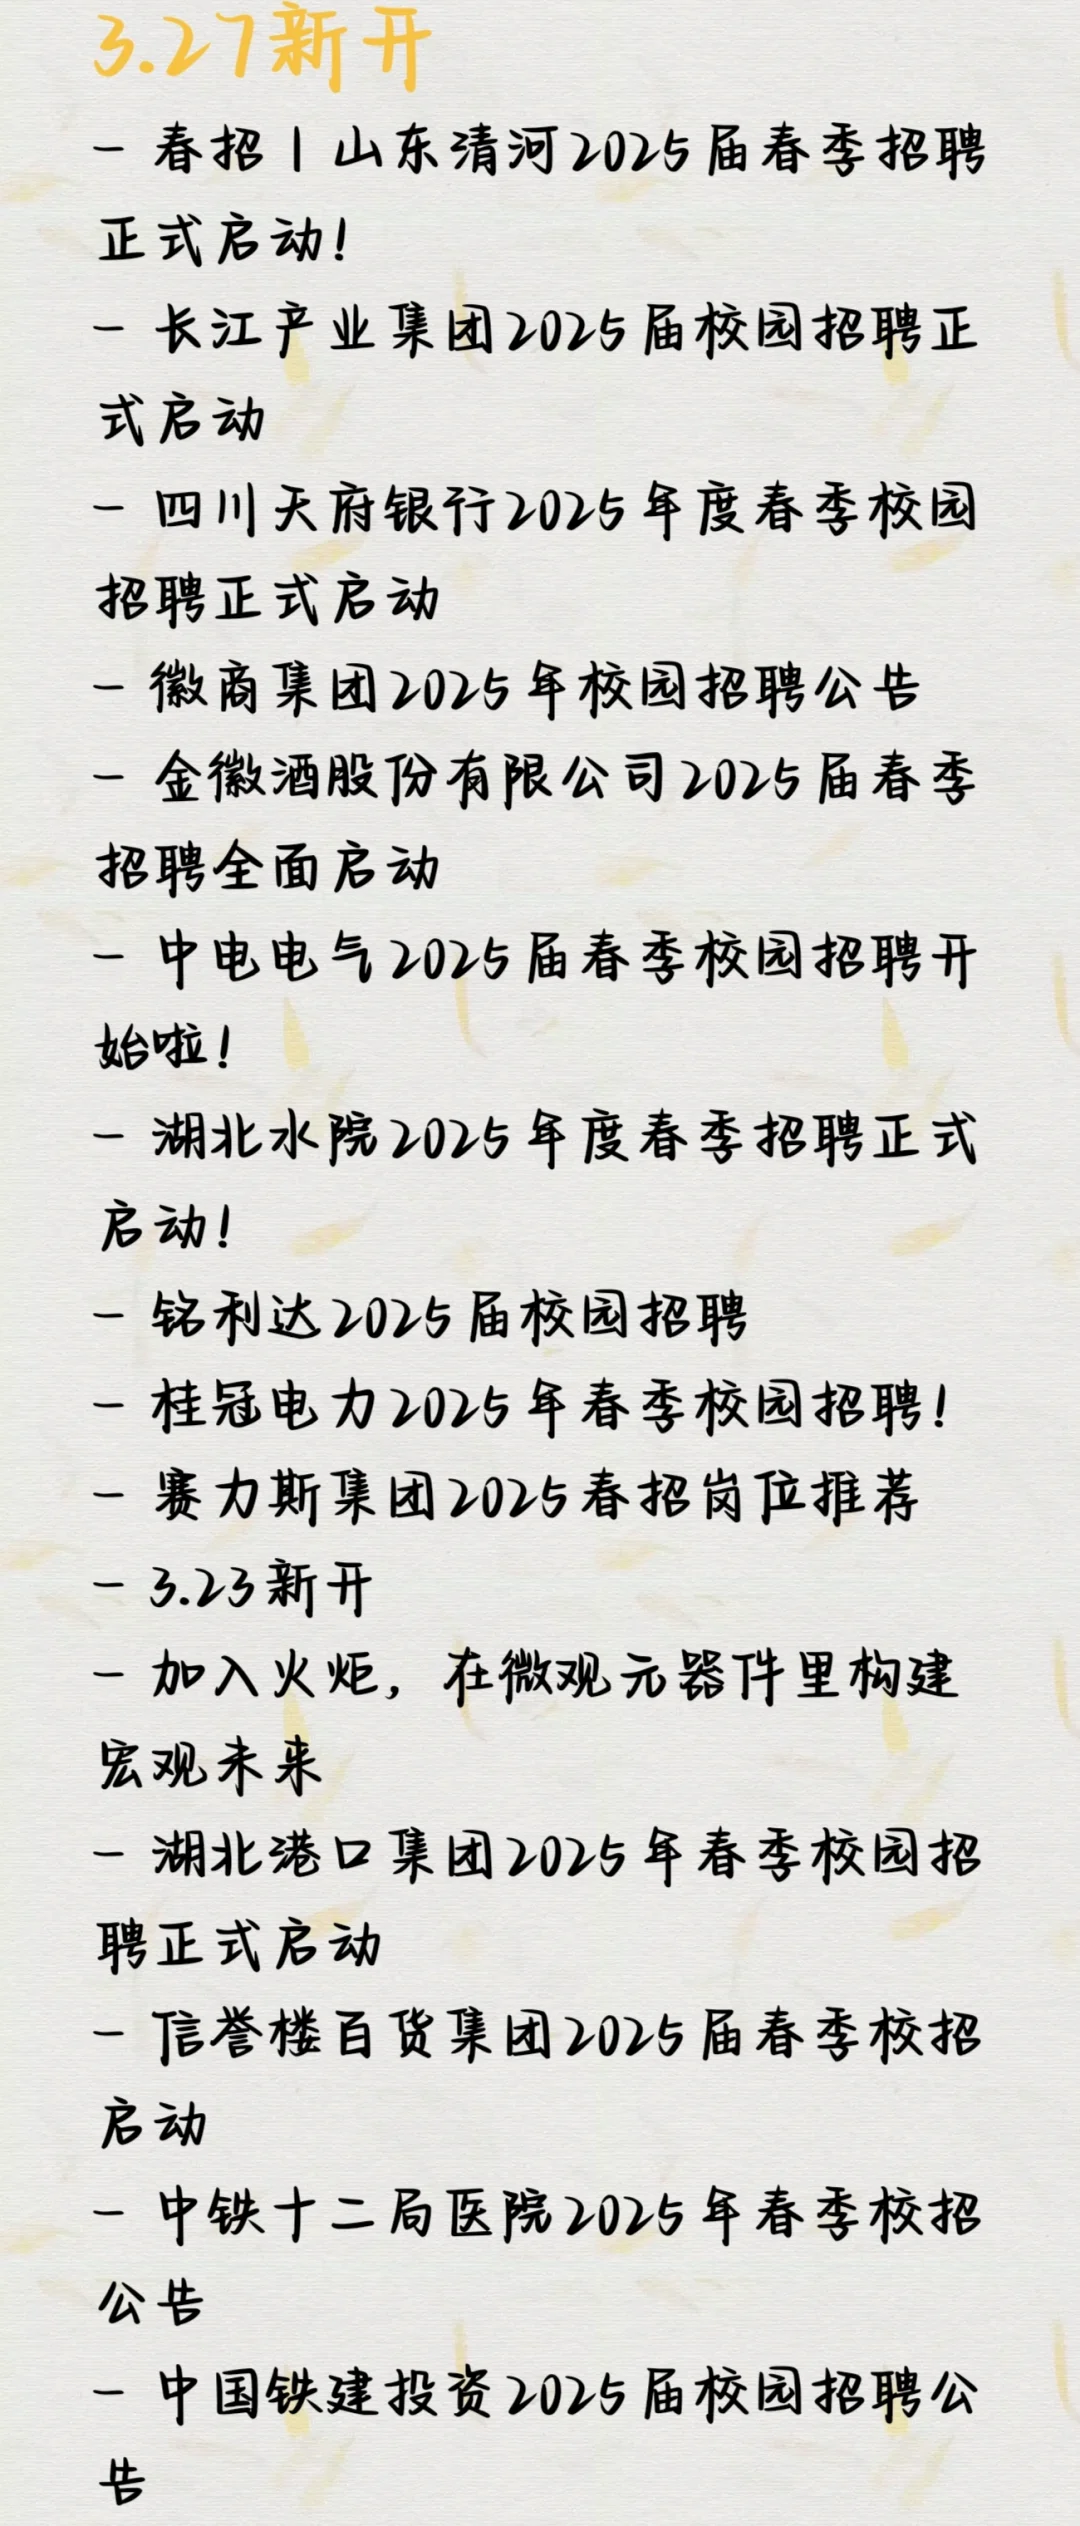 3.27新开
- 春招丨山东清河2025届春季招聘
正式启动!
- 长江产业集团2025届校园招聘正
式启动
- 四川天府银行2025年度春季校园
招聘正式启动
- 徽商集团2025年校园招聘公告
- 金徽酒股份有限公司2025届春季
招聘全面启动
- 中电电气2025届春季校园招聘开
始啦!
- 湖北水院2025年度春季招聘正式
启动!
- 铭利达2025届校园招聘
- 桂冠电力2025年春季校园招聘!
- 赛力斯集团2025春招岗位推荐
- 3.23新开
- 加入火炬, 在微观元器件里构建
宏观未来
- 湖北港口集团2025年春季校园招
聘正式启动
- 信誉楼百货集团2025届春季校招
启动
- 中铁十二局医院2025年春季校招
公告
- 中国铁建投资2025届校园招聘公
告